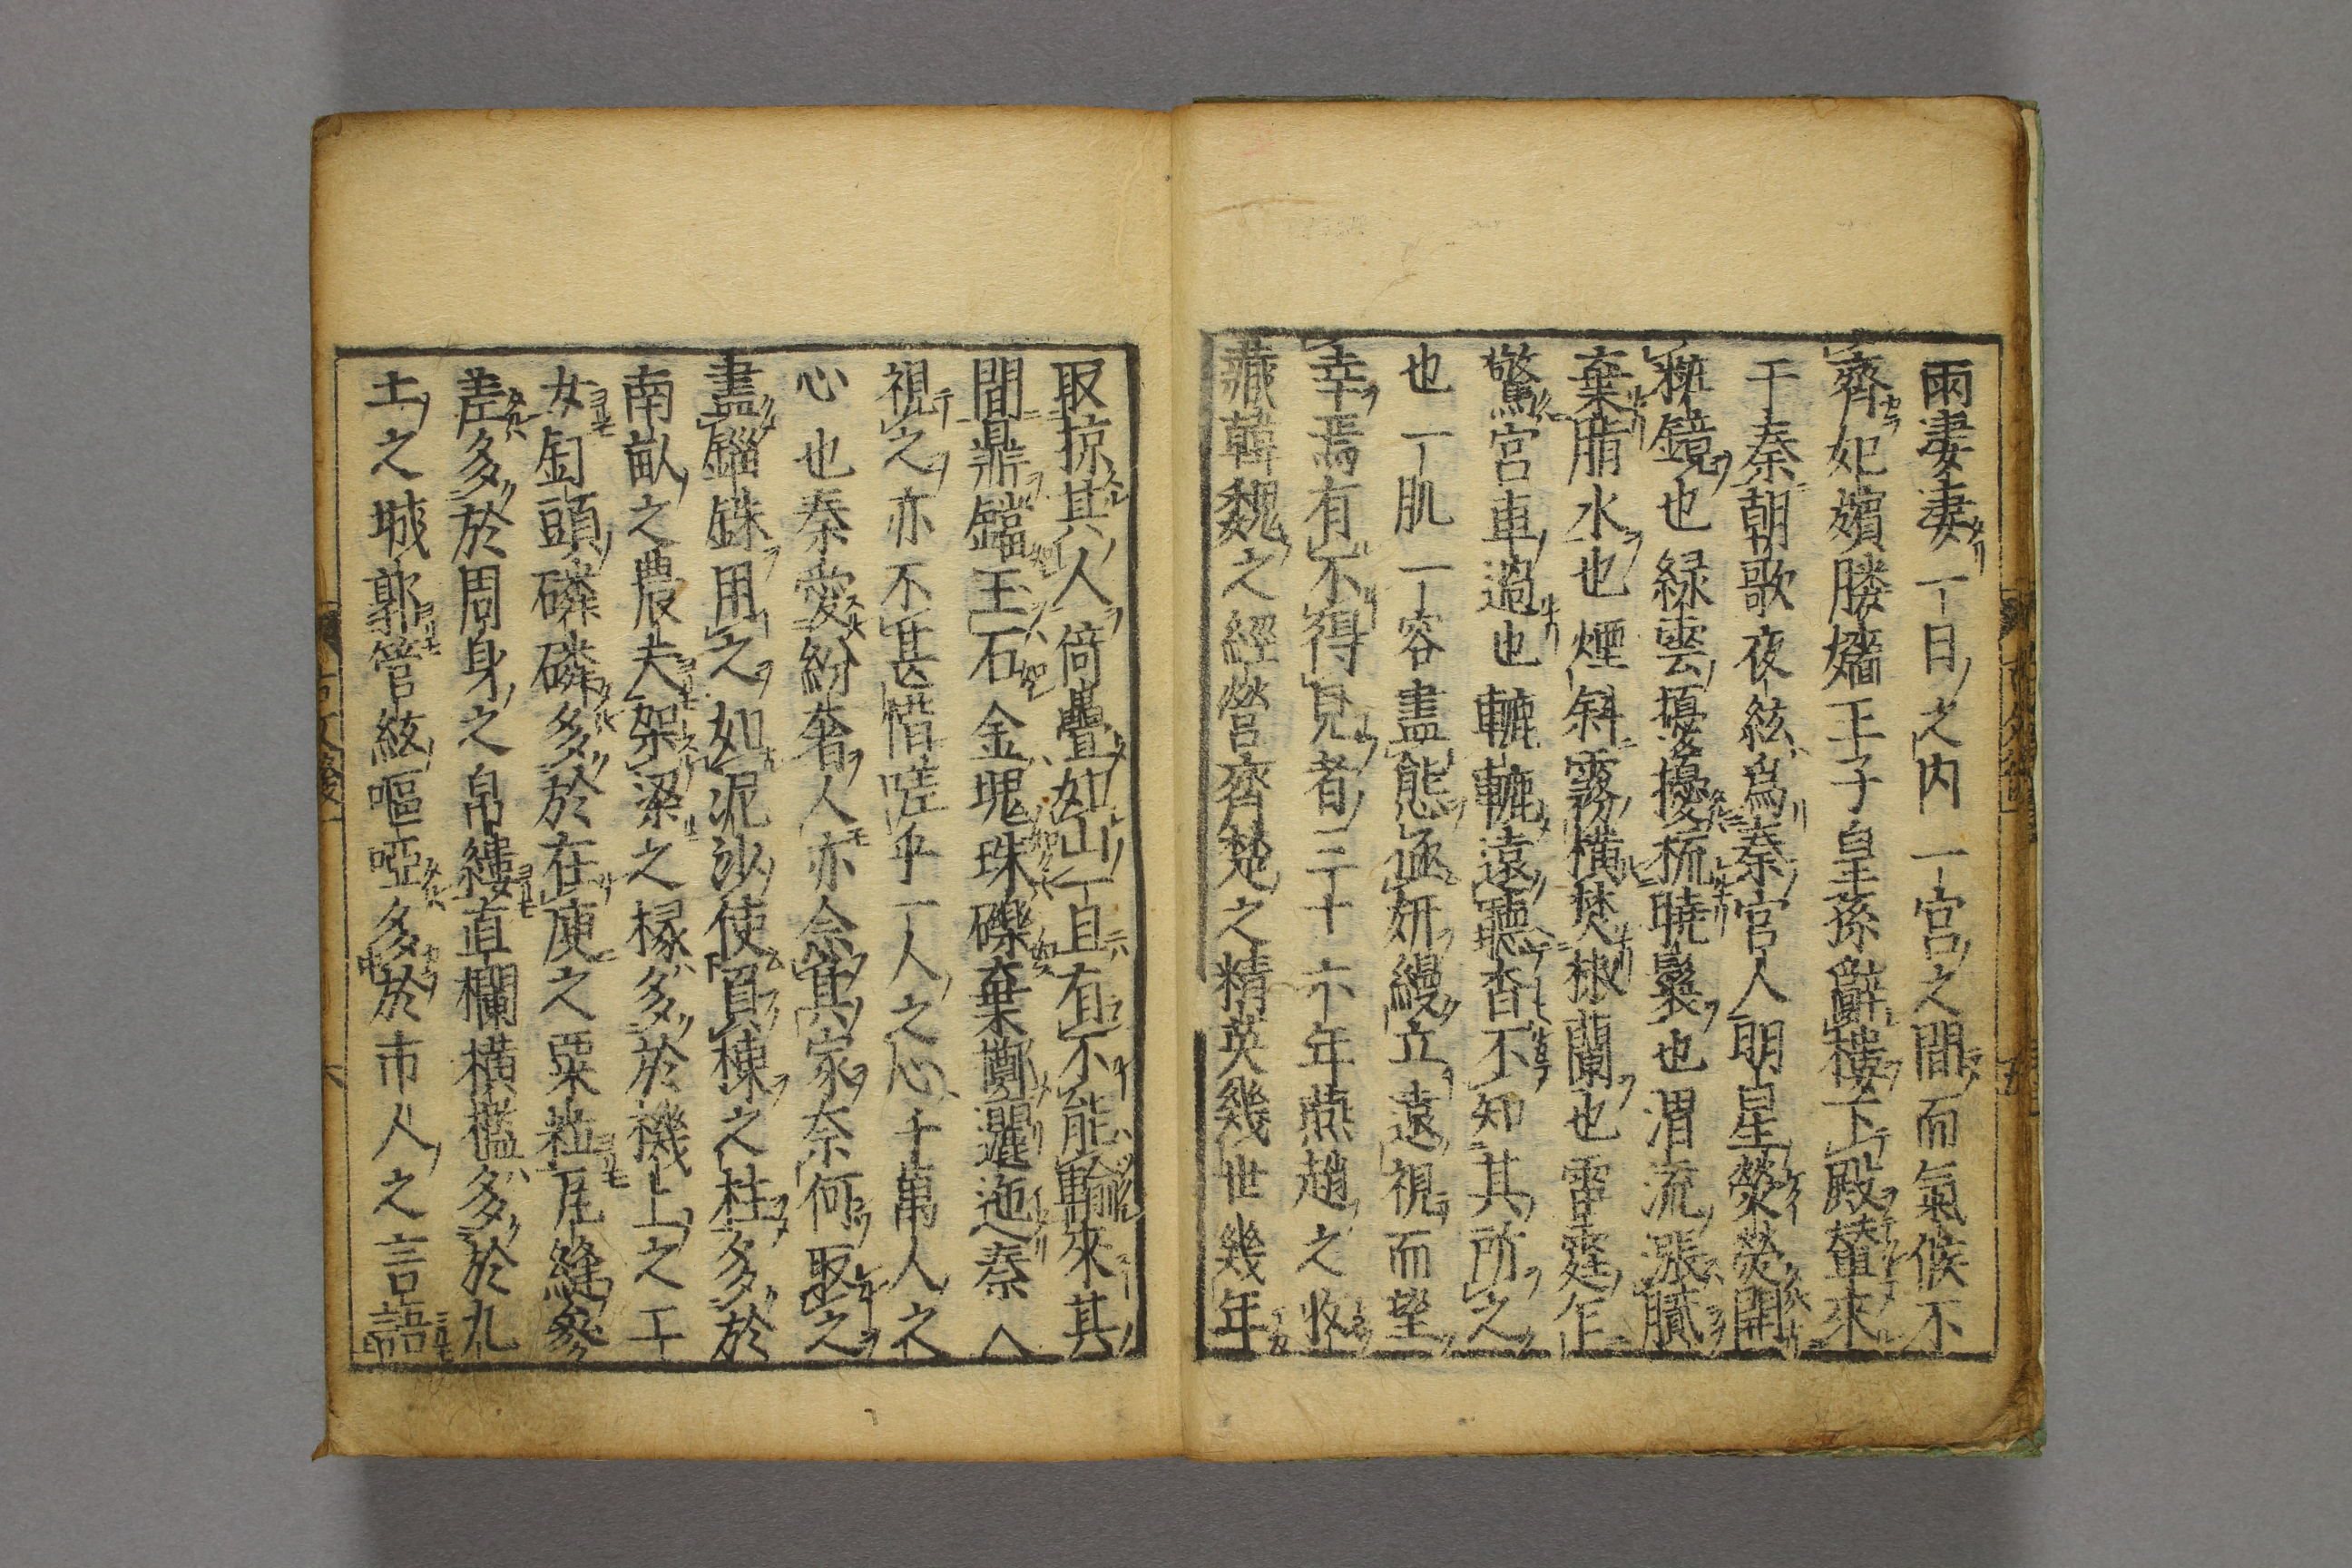 雨凄凄一日之内一宮之間而氣候不
齊妃嬪媵嬙王子皇孫辭樓下殿輦來
于秦朝歌夜絃爲秦宮人明星熒熒開
粧鏡也緑雲擾擾梳曉鬟也渭流漲膩
棄脂水也煙斜霧横焚椒蘭也雷霆乍
驚宮車過也轆轆遠聽杳不知其所之
也一肌一容盡態極妍縵立遠視而望
幸焉有不得見者三十六年燕趙之收
藏韓魏之經營齊楚之精英幾世幾年
取掠其人倚疊如山一旦有不能輸來其
間鼎鐺玉石金塊珠礫棄擲邐迤秦人
視之亦不甚惜嗟乎一人之心千萬人之
心也秦愛紛奢人亦念其家奈何取之
盡錙銖用之如泥沙使負棟之柱多於
南畝之農夫架梁之椽多於機上之工
女釘頭磷磷多於在庾之粟粒瓦縫參
差多於周身之帛縷直欄横檻多於九
土之城郭管絃嘔啞多於市人之言語